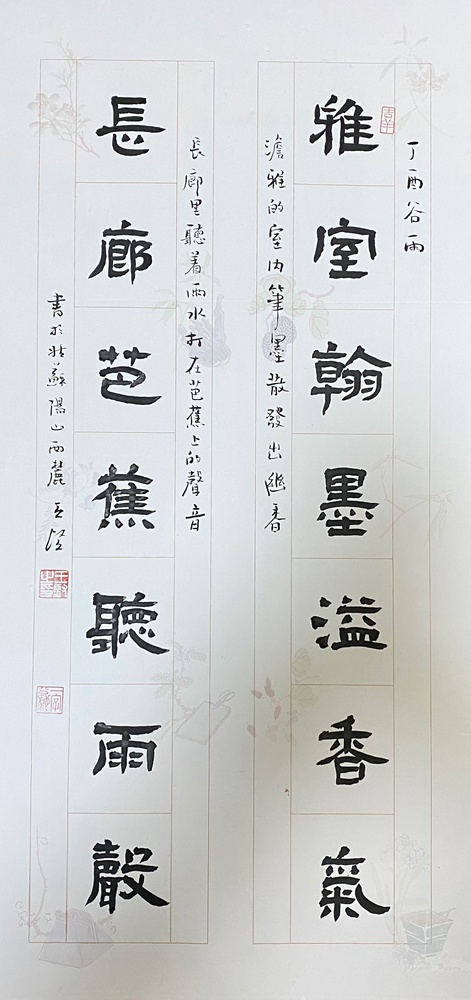 丁酉谷雨
雅室翰墨溢香氣
澹雅的室内筆墨散發出幽香
長廊里聽着雨水打在芭蕉上的聲音
長廊芭蕉聽雨聲
書於姑蘇陽山西麓